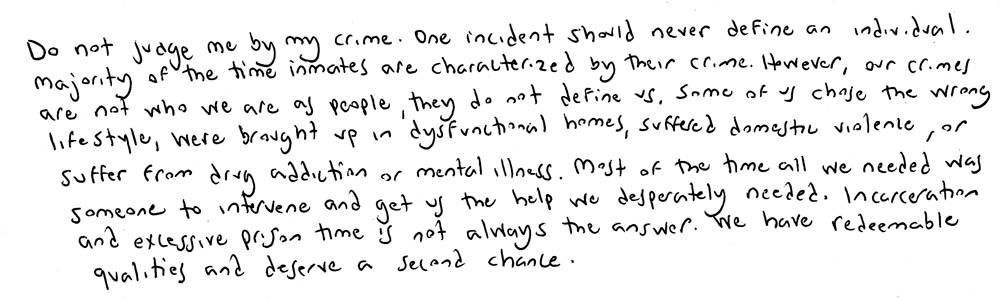 Do not judge me by my crime. One incident should never define an individual.
majority of the time inmates are characterized by their crime. However, our crimes
are not who we are as people, they do not define us. Some of us chose the wrong
lifestyle, were brought up in dysfunctional homes, suffered domestic violence, or
suffer from drug addiction or mental illness. Most of the time all we needed was
someone to intervene and get us the help we desperately needed. Incarceration
and excessive prison time is not always the answer. We have redeemable
qualities and deserve a second chance.